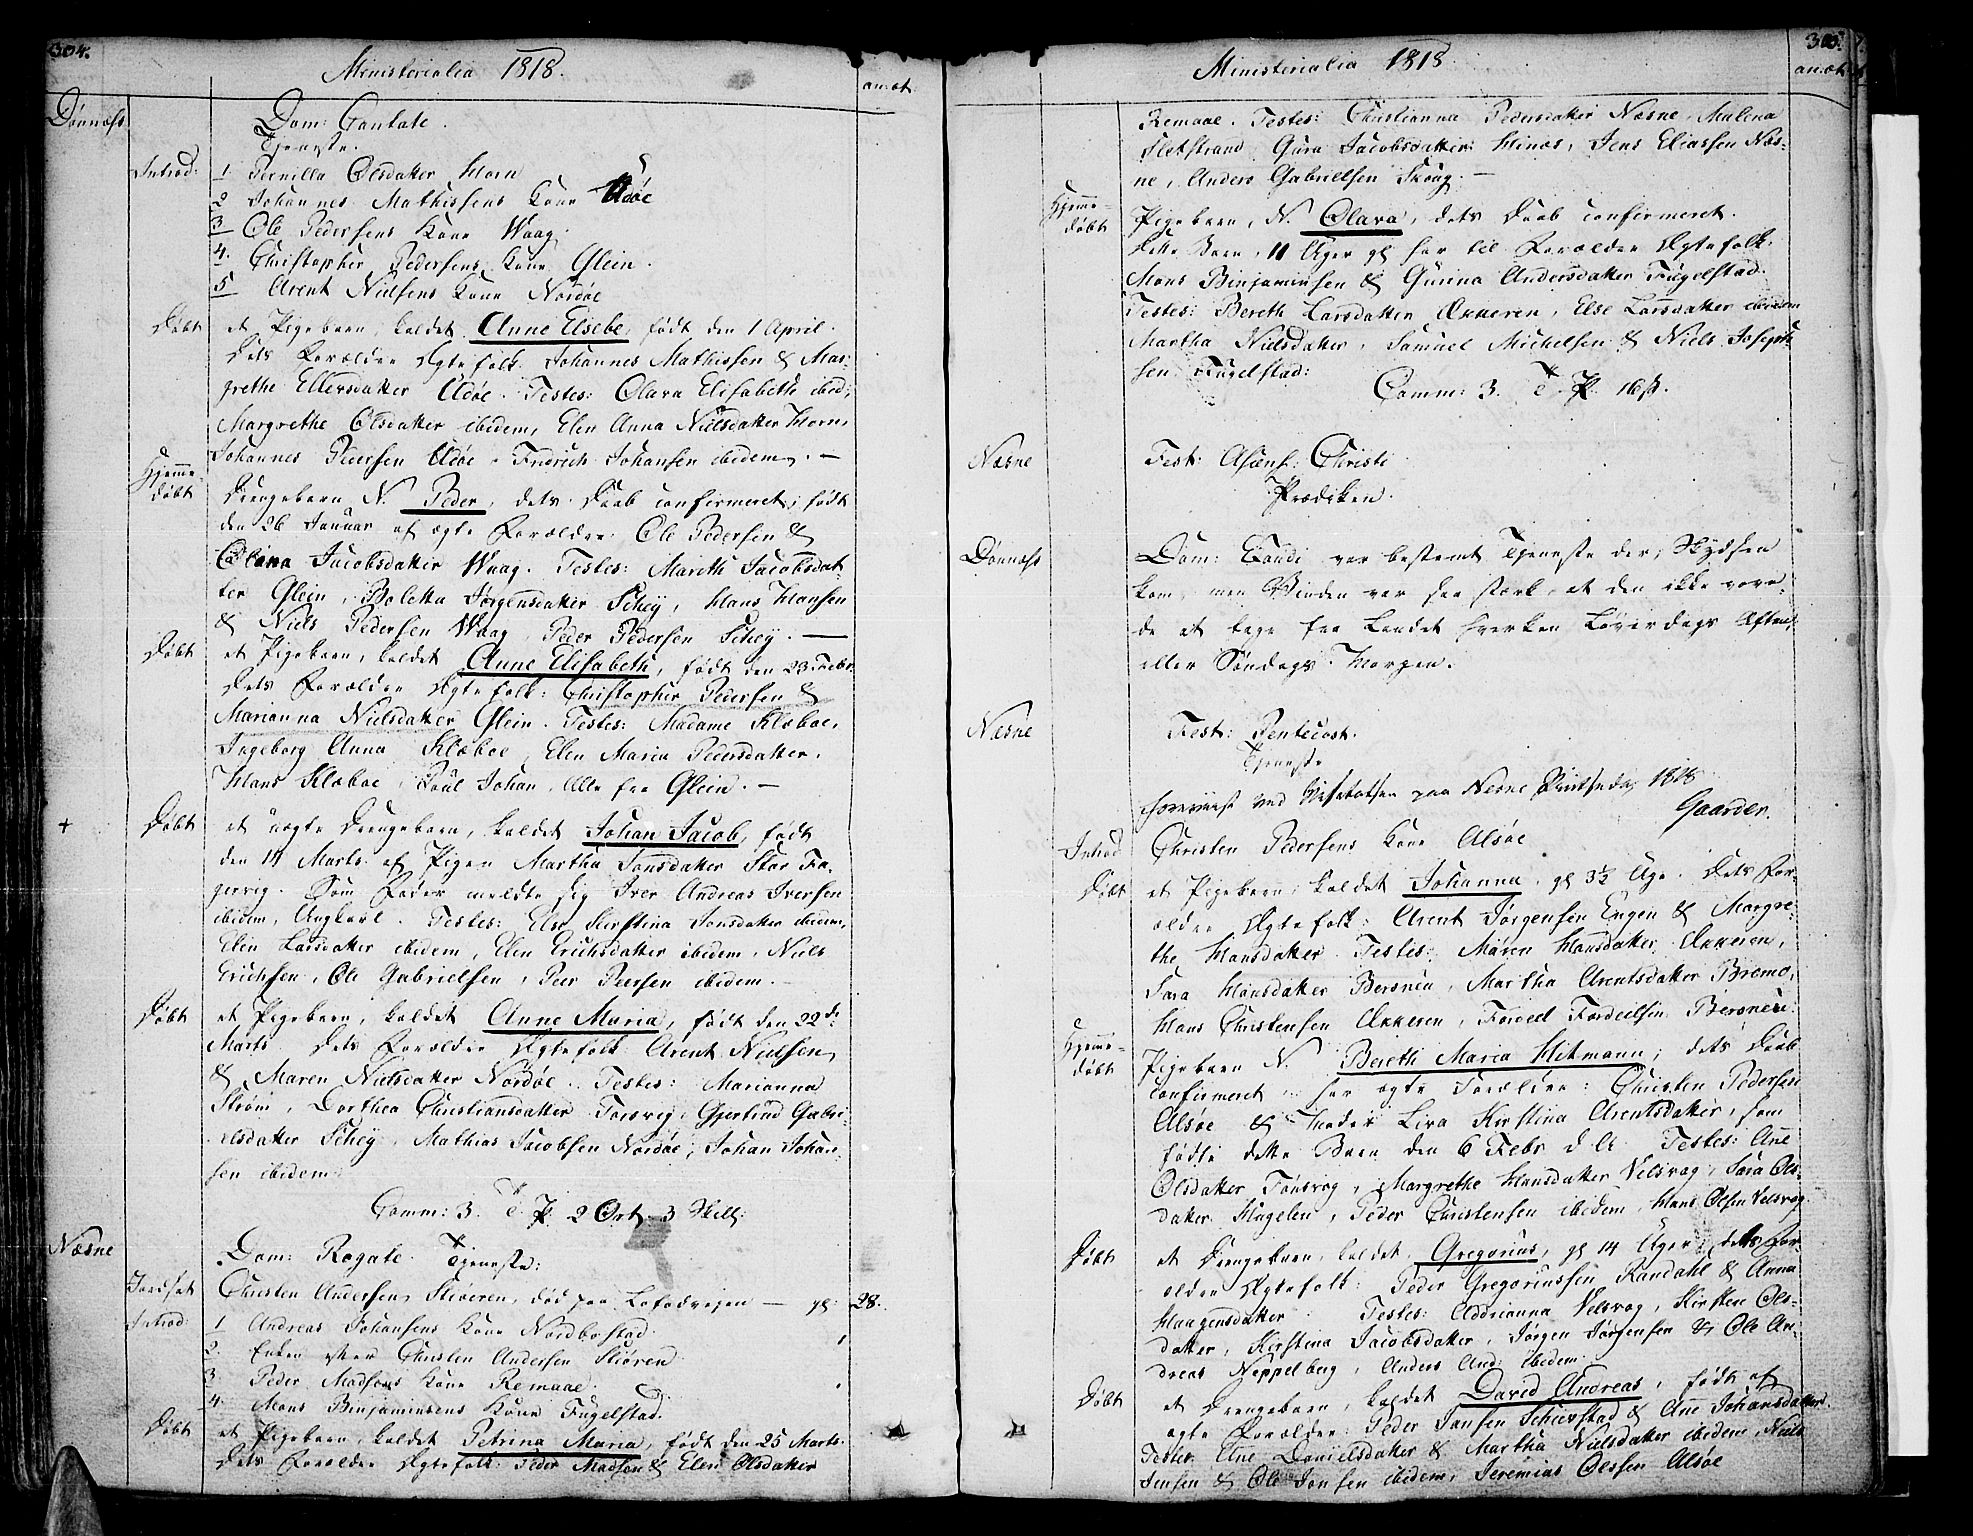 304.
Ministerialia 1818.
an: æt.
Dønnæss
Dom: Cantate.
Tjeneste.
Introd: 1 Pernilla Olsdatter Horn
2 Johannes Mathissens Kone Udøe
3 Ole Pedersens Kone Waag.
4. Christopher Pedersens Kone Glein.
5 Arent Nielsens Kone Nordøe
Døbt et Pigebarn, kaldet Anne Elsebe, født den 1 April.
Dets Forældre Ægtefolk Johannes Mathissen & Mar-
grethe Ellersdatter Udøe. Testes: Olava Elisabeth ibid,
Margrethe Olsdatter ibidem, Elen Anna Nielsdatter Horn,
Johannes Pedersen Udøe, Fridrich Johansen ibidem. —
Hjemme-
døbt
Drengebarn N. Peder, dets Daab confirmeret, født
den 26 Januar af ægte Forældre: Ole Pedersen &
Olina Jacobsdatter Waag. Testes: Mareth Jacobsdat-
ter Glein, Boletta Jørgensdatter Schey, Hans Hansen
& Niels Pedersen Waag, Peder Pedersen Schey. —
Døbt et Pigebarn, kaldet Anne Elisabeth, født den 23 Febr.
Dets Forældre Ægtefolk: Christopher Pedersen &
Marianna Nielsdatter Glein. Testes: Madame Klæboe,
Ingeborg Anna Klæboe, Elen Maria Pedersdatter,
Hans Klæboe, Poul Johan, Alle fra Glein. —
+ Døbt et uægte Drengebarn, kaldet Johan Jacob, født
den 14 Marts af Pigen Martha Jonsdatter Stor Fa-
gervig. Som Fader meldte sig Iver Andreas Iversen
ibidem, Ungkarl. Testes: Else Kirstina Jonsdatter ibidem,
Elen Larsdatter ibidem, Elen Erichsdatter ibidem, Niels
Erichsen, Ole Gabrielsen, Peer Peersen ibidem. —
Døbt et Pigebarn, kaldet Anne Maria, født den 22de
Marts. Dets Forældre Ægtefolk Arent Nielsen
& Maren Nielsdatter Nordøe. Testes: Marianna
Strøm, Dorthea Christiansdatter Forsvig, Gjertrud Gabri-
elsdatter Schey, Mathias Jacobsen Nordøe, Johan Johan-
sen ibidem.
Comm: 3. T. P. 2 Ort 3 Skill:
Næsne
Dom: Rogate. Tjeneste:
Jordfæt Christen Andersen Stiøren, død paa Lofodreisen — gl: 28.
Introd: 1 Andreas Johansens Kone Nordbostad.
2. Enken efter Christen Andersen Stiøren
3 Peder Madsens Kone Remaae.
4. Mons Binjaminsens Kone Fugelstad.
Døbt et Pigebarn, kaldet Petrina Maria, født den 25 Marts.
Dets Forældre Ægtefolk: Peder Madsen & Elen Olsdatter
305.
Ministerialia 1818
an: æt.
Remaae. Testes: Christianna Pedersdatter Næsne, Malena
Fletstrand, Gura Jacobsdatter Hinæs, Jens Eliassen Næs-
ne, Anders Gabrielsen Skoag. —
Hjemme-
døbt
Pigebarn, N. Olava, dets Daab confirmeret.
Dette Barn, 11 Uger gl har til Forældre Ægtefolk.
Mons Binjaminsen & Gurina Andersdatter Fugelstad.
Testes: Bereth Larsdatter Økkeren, Else Larsdatter ibidem
Martha Nielsdatter, Samuel Michelsen & Niels Joseph-
sen Fugelstad:
Comm: 3. T. P. 16 ß.
Næsne
Fest: Ascens: Christi
Prædiken.
Dønnæss
Dom: Exaudi var bestemt Tjeneste der; Skydsen
kom, men Vinden var saa stærk, at den ikke vove-
de at tage fra Landet hverken Løverdags Aften,
eller Søndags Morgen.
Næsne
Fest: Pentecost.
Tjeneste
Foreviist ved Visitatsen paa Nesne Pintsedag 1818
Gaarder.
Introd Christen Pedersens Kone Alsøe
Døbt et Pigebarn, kaldet Johanna, gl 3½ Uge. Dets For-
ældre Ægtefolk: Arent Jørgensen Engen & Margre-
the Hansdatter. Testes: Maren Hansdatter Økkeren,
Sara Hansdatter Bersneu, Martha Arentsdatter Bremo,
Hans Christensen Økkeren, Forded Fordeilsen Bersneu.
Hjemme-
døbt
Pigebarn N. Bereth Maria Hitmann, dets Daab
confirmeret, har ægte Forældre: Christen Pedersen
Alsøe & Moder Liva Kirstina Arentsdatter, som
fødte dette Barn den 6 Febr d. A. Testes: Ane
Olsdatter Fonsvog, Margrethe Hansdatter Velsvog, Sara Ols-
datter Hugelen, Peder Christensen ibidem, Hans Olsen Velsvog.
Døbt et Drengebarn, kaldet Gregorius, gl 14 Uger, dets For-
ældre Ægtefolk: Peder Gregoriussen Randahl & Anna
Haagensdatter. Testes: Addrianna Velsvog, Kirsten Ols-
datter, Kirstina Jacobsdatter, Jørgen Jørgensen & Ole An-
dreas Neppelberg, Anders And: ibidem.
Døbt et Drengebarn, kaldet David Andreas, født af
ægte Forældre: Peder Jansen Schievstad & Ane Johansdatter.
Testes: Ane Danielsdatter & Martha Nielsdatter ibidem, Niels
Jensen & Ole Jonsen ibidem, Jeremias Olssen Alsøe